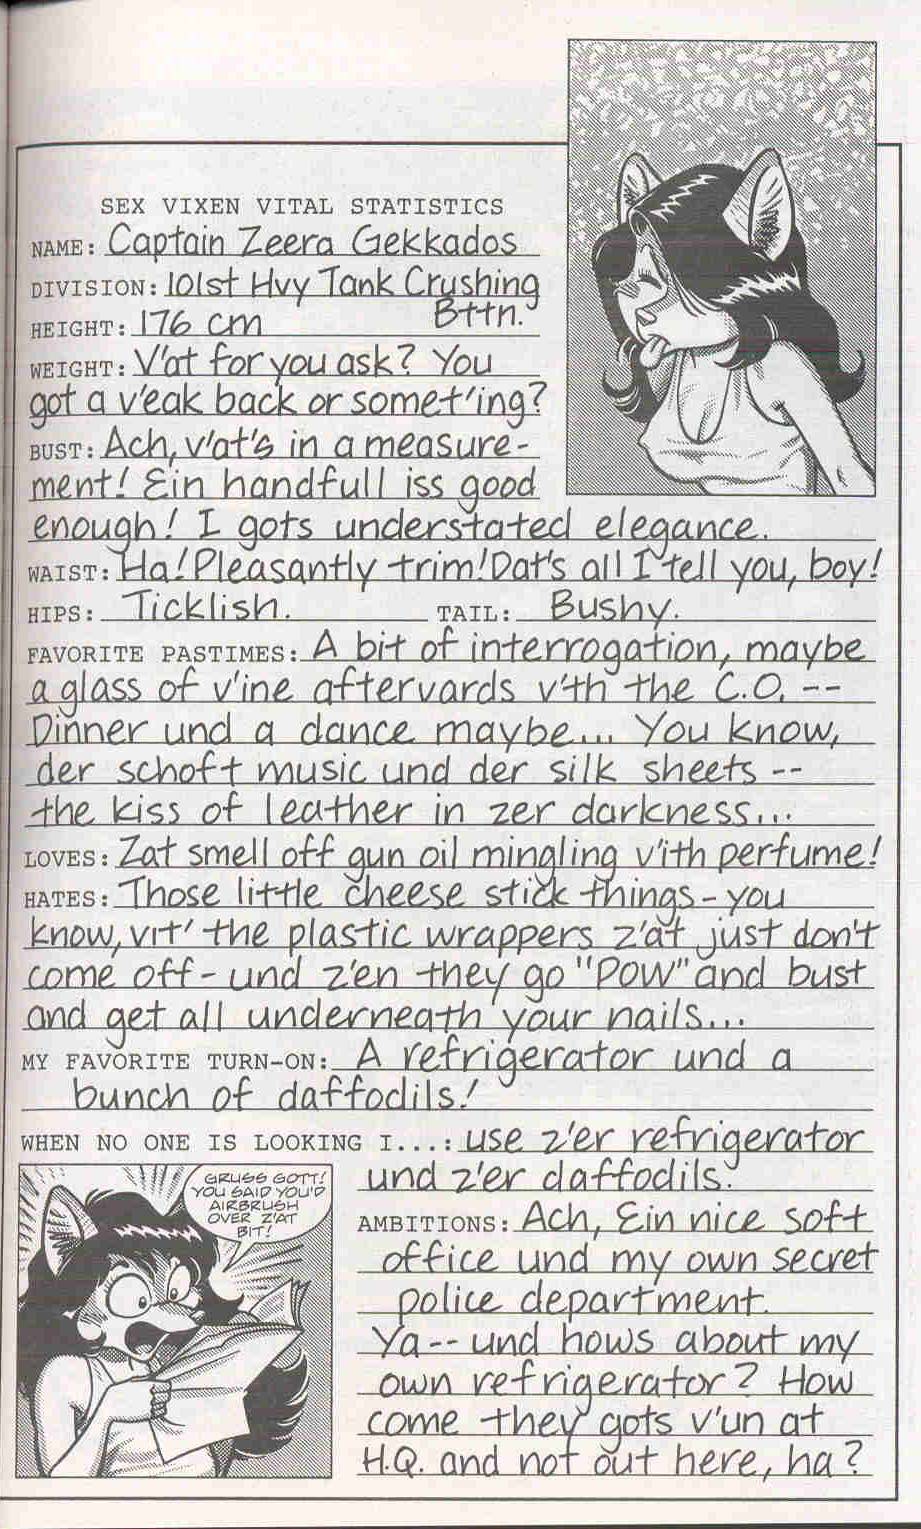 SEX VIXEN VITAL STATISTICS
NAME: Captain Zeera Gekkados
DIVISION: 101st Hvy Tank Crushing
Bttn.
HEIGHT: 176 cm
WEIGHT: V'at for you ask? You
got a v'eak back or somet'ing?
BUST: Ach, v'at's in a measure-
ment! Ein handfull iss good
enough! I gots understated elegance.
WAIST: Ha! Pleasantly trim! Dat's all I tell you, boy!
HIPS: Ticklish. TAIL: Bushy.
FAVORITE PASTIMES: A bit of interrogation, maybe
a glass of v'ine aftervards v'th the C.O. --
Dinner und a dance maybe... You know,
der schoft music und der silk sheets --
the kiss of leather in zer darkness...
LOVES: Zat smell off gun oil mingling v'ith perfume!
HATES: Those little cheese stick things - you
know, vit' the plastic wrappers z'at just don't
come off - und z'en they go "POW" and bust
and get all underneath your nails...
MY FAVORITE TURN-ON: A refrigerator und a
bunch of daffodils!
WHEN NO ONE IS LOOKING I...: use z'er refrigerator
und z'er daffodils.
GRUSS GOTT!
YOU SAID YOU'D
AIRBRUSH
OVER Z'AT
BIT!
AMBITIONS: Ach, Ein nice soft
office und my own secret
police department.
Ya -- und hows about my
own refrigerator? How
come they gots v'un at
H.Q. and not out here, ha?